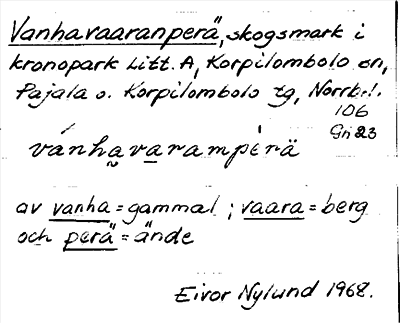 Vanhavaaranperä, skogsmark i
kronopark Litt. A, Korpilombolo sn,
Pajala o. Korpilombolo tg, Norrb. l.
106
Gri 23
vánha̰va̱rampérä
av vanha = gammal ; vaara = berg
och perä = ände
Eivor Nylund 1968.